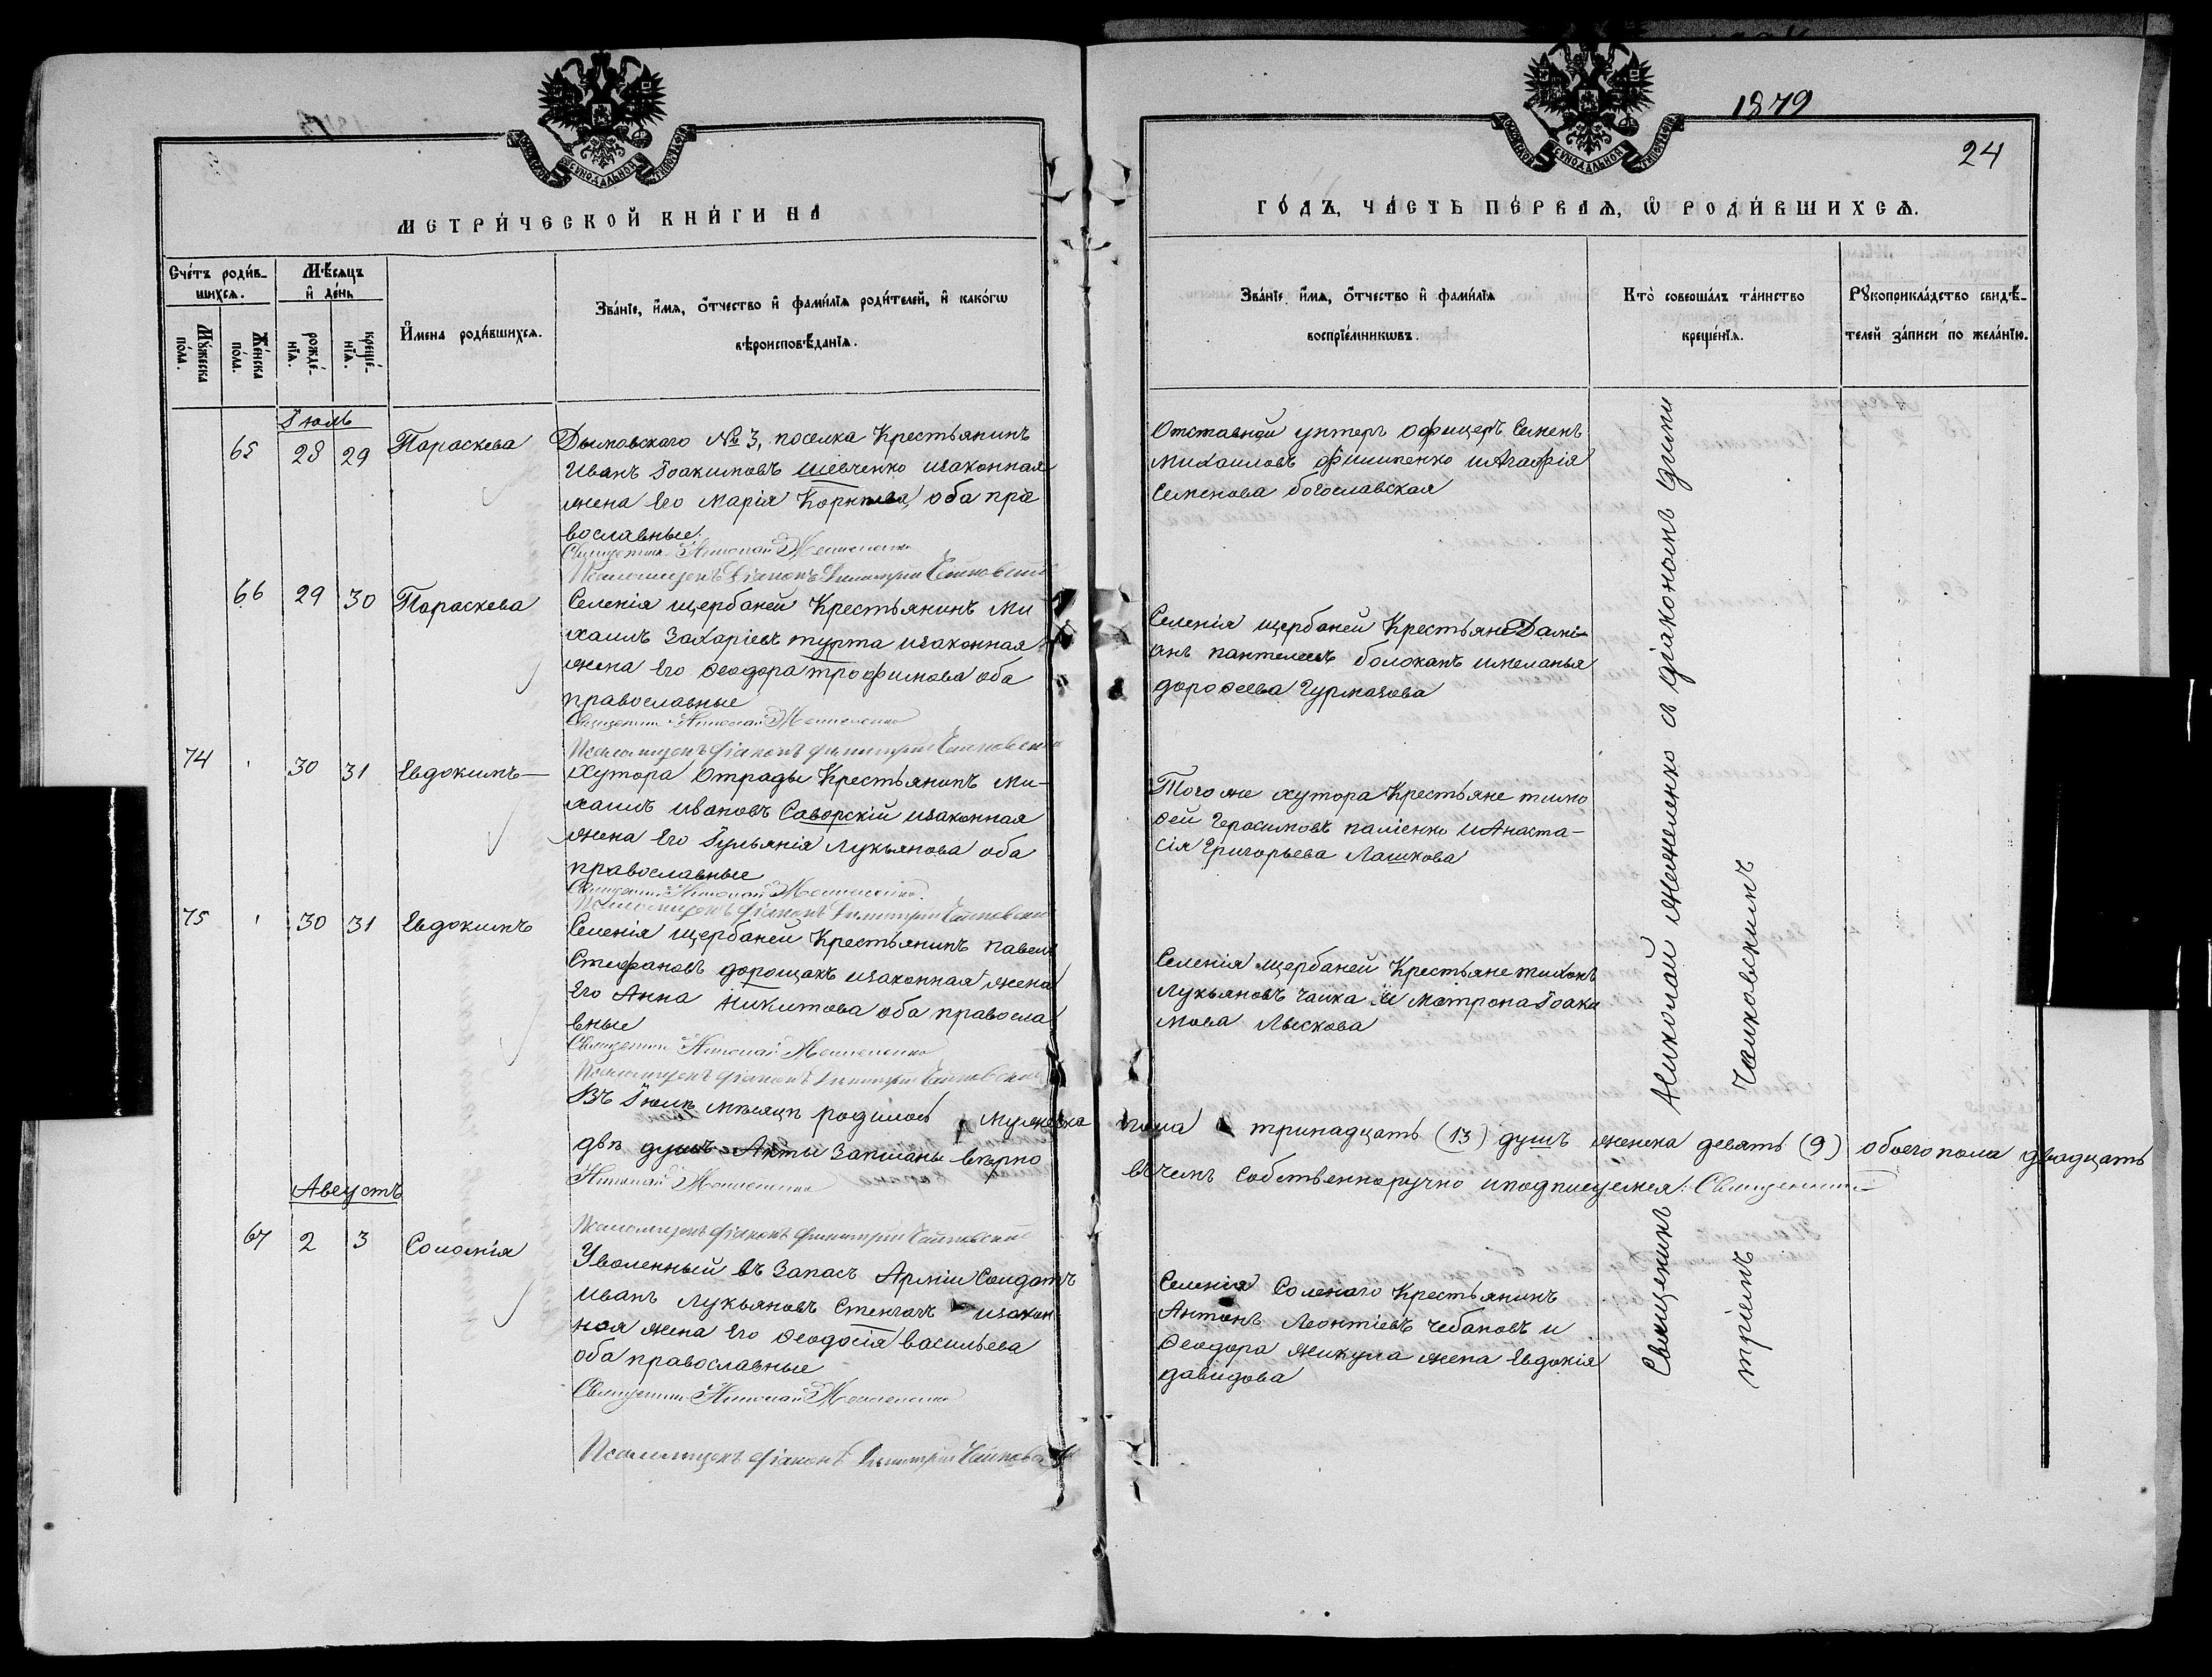 1879
24
МЕТРИЧЕСКОЙ КНИГИ НА
ГОДЪ, ЧАСТЬ ПЕРВАЯ, Ѡ РОДИВШИХСЯ.
Счетъ родив-
шихся.
Мужеска
пола.
Женска
пола.
Мѣсяцъ
и день
рожде-
нія.
креще-
нія.
Имена родившихся.
Званіе, имя, отчество и фамилія родителей, и какогѡ
вѣроисповѣданія.
Званіе, имя, отчество и фамилія
воспріемниковъ.
Кто совершалъ таинство
крещенія.
Рукоприкладство свидѣ-
телей записи по желанію.
Іюль
65 28 29 Параскева
Дымовскаго № 3, поселка Крестьянинъ
Иванъ Іоакимовъ Шевченко изаконная
жена Его Марія Корнѣева, оба пра
вославные
Священникъ Николай Жемеленко
Псаломщикъ Діаконъ Димитрій Чайковскій
Отставной унтеръ офицеръ Семенъ
Михаиловъ Филипенко и Агафія
Семенова Богославская
66 29 30 Параскева
Селенія Щербаней Крестьянинъ Ми
хаилъ Захаріевъ Турта изаконная
жена Его Ѳеодора Трофимова оба
православные
Священникъ Николай Жемеленко
Псаломщикъ діаконъ Димитрій Чайковскій
Селенія Щербаней Крестьяне Дамі-
анъ Пантелеевъ Болоканъ и Меланья
Дороѳеева Гурмазова
74 30 31 Евдокимъ
Хутора Отрады Крестьянинъ Ми-
хаилъ Ивановъ Саворскій изаконная
жена Его Іульянія Лукьянова оба
православные
Священникъ Николай Жемеленко
Псаломщикъ діаконъ Димитрій Чайковскій
Того же хутора Крестьяне Тимо
ѳей Герасимовъ Паліенко и Анаста-
сія Григорьева Лашкова
75 30 31 Евдокимъ
Селенія Щербаней Крестьянинъ Павелъ
Стефановъ Дорощакъ изаконная жена
Его Анна Никитова оба правосла
вные
Священникъ Николай Жемеленко
Псаломщикъ діаконъ Димитрій Чайковскій
Селенія Щербаней Крестьяне Тихонъ
Лукьяновъ Чайка и Матрона Іоаки
мова Лыскова
Въ Іюлѣ мѣсяцѣ родилось мужеска пола тринадцать (13) душъ женска девять (9) обоего пола двадцать
двѣ душъ Акты записаны вѣрно въ чемъ собственноручно и подписуемся: Священникъ
Николай Жемеленко
Псаломщикъ діаконъ Димитрій Чайковскій
Августъ
67 2 3 Соломія
Уволенный въ Запасъ Арміи Солдатъ
Иванъ Лукьяновъ Стенгачъ изакон
ная жена Его Ѳеодосія Васильева
оба православные
Священникъ Николай Жемеленко
Псаломщикъ діаконъ Димитрій Чайковскій
Селенія Соленаго Крестьянинъ
Антонъ Леонтіевъ Чебановъ и
Ѳеодора Микула жена Евдокія
Давидова
Священникъ Николай Жемеленко съ діакономъ Дими
тріемъ Чайковскимъ